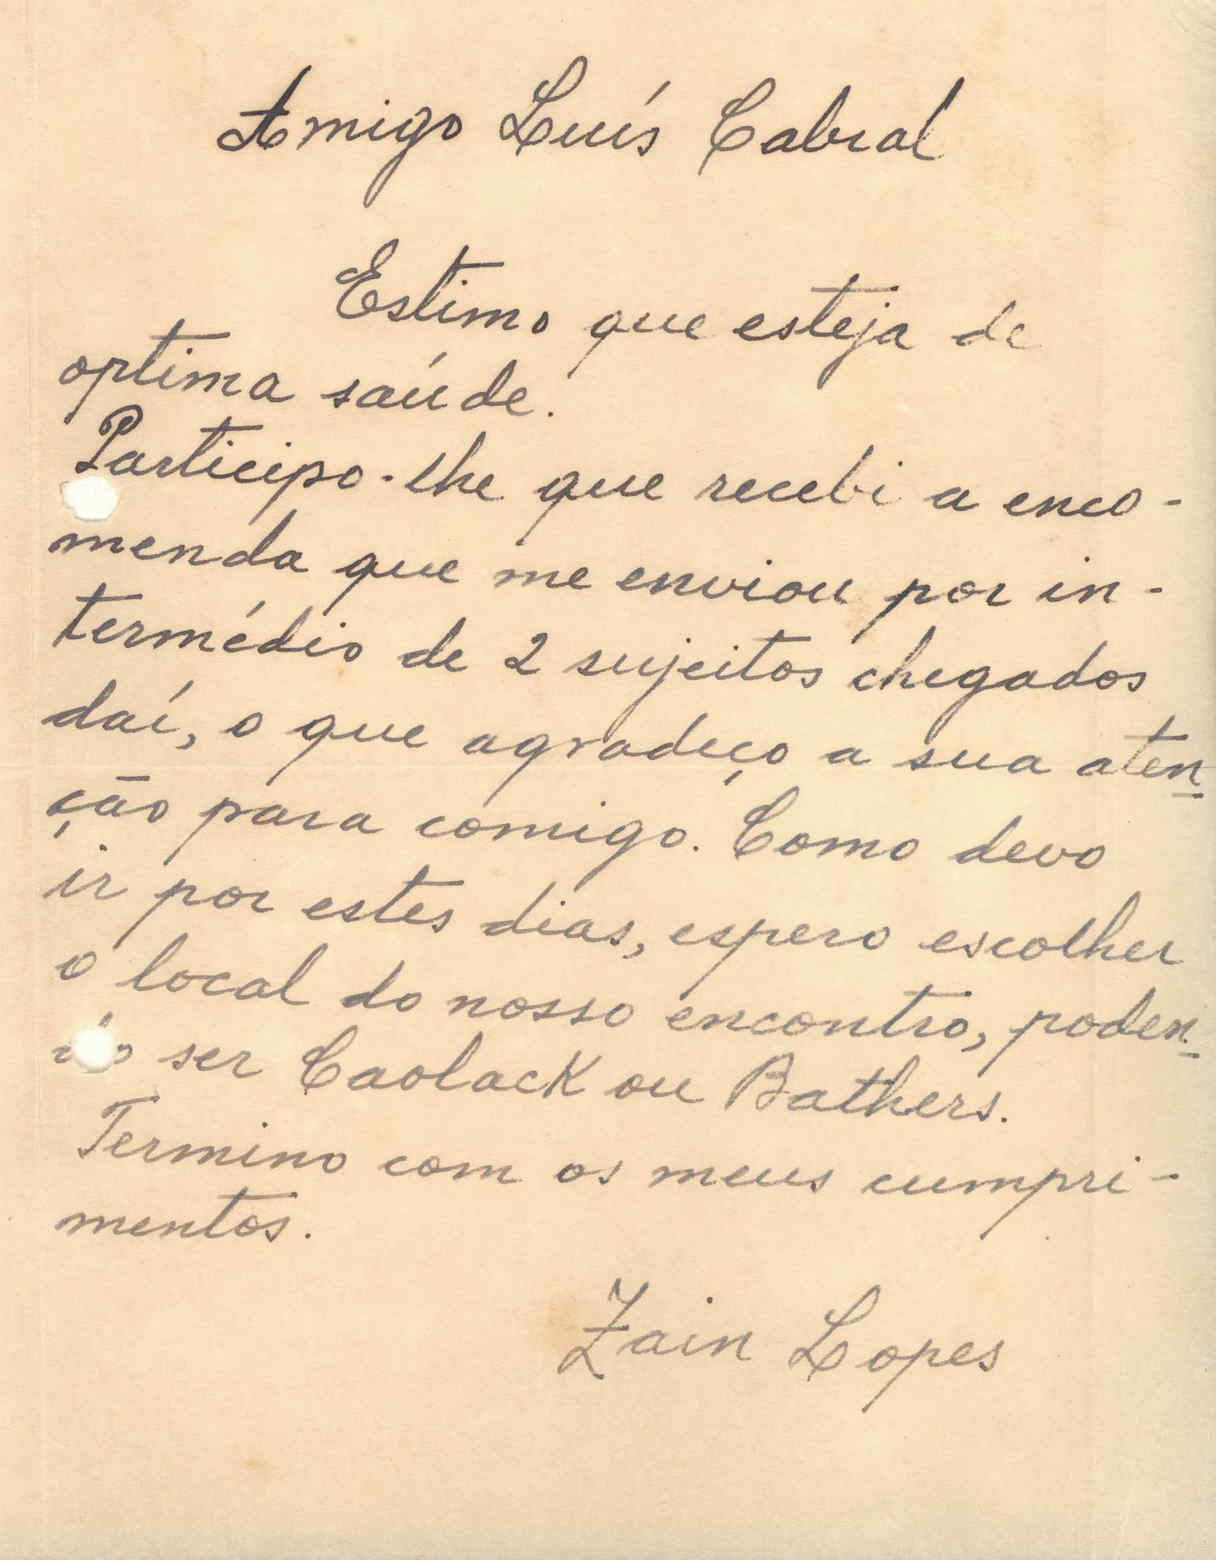 Amigo Luís Cabral
Estimo que esteja de
optima saúde.
Participo-lhe que recebi a enco-
menda que me enviou por in-
termédio de 2 sujeitos chegados
daí, o que agradeço a sua aten-
ção para comigo. Como devo
ir por estes dias, espero escolher
o local do nosso encontro, poden-
do ser Caolack ou Bathers.
Termino com os meus cumpri-
mentos.
Zain Lopes